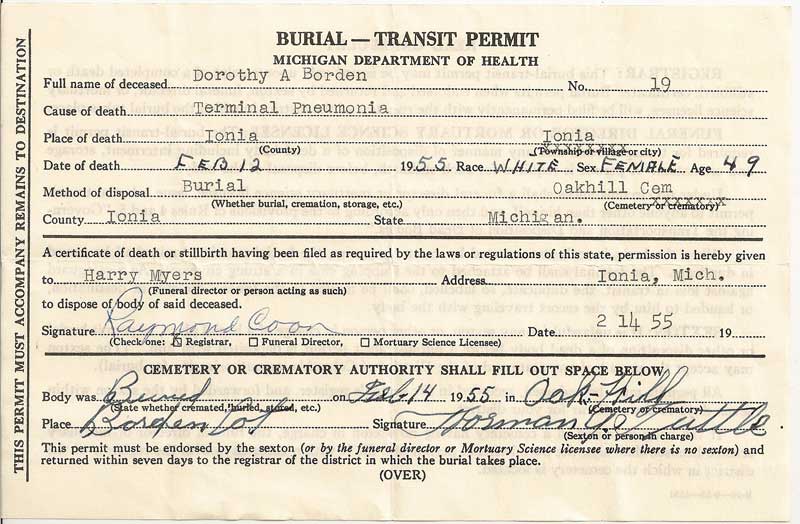 BURIAL — TRANSIT PERMIT
MICHIGAN DEPARTMENT OF HEALTH
Full name of deceased Dorothy A Borden No. 19
Cause of death Terminal Pneumonia
Place of death Ionia Ionia
(County) (Township or village or city)
Date of death FEB 12 1955 Race WHITE Sex FEMALE Age 49
Method of disposal Burial Oakhill Cem
(Whether burial, cremation, storage, etc.) (Cemetery or crematory)
County Ionia State Michigan.
A certificate of death or stillbirth having been filed as required by the laws or regulations of this state, permission is hereby given
to Harry Myers Address Ionia, Mich.
(Funeral director or person acting as such)
to dispose of body of said deceased.
Signature Raymond Coon Date 2 14 55 19
(Check one: ☒ Registrar, ☐ Funeral Director, ☐ Mortuary Science Licensee)
CEMETERY OR CREMATORY AUTHORITY SHALL FILL OUT SPACE BELOW
Body was Buried on Feb 14 1955 in Oak-Hill
(State whether cremated, buried, stored, etc.) (Cemetery or crematory)
Place Borden Lot Signature Norman Tuttle
(Sexton or person in charge)
This permit must be endorsed by the sexton (or by the funeral director or Mortuary Science licensee where there is no sexton) and
returned within seven days to the registrar of the district in which the burial takes place.
(OVER)
THIS PERMIT MUST ACCOMPANY REMAINS TO DESTINATION